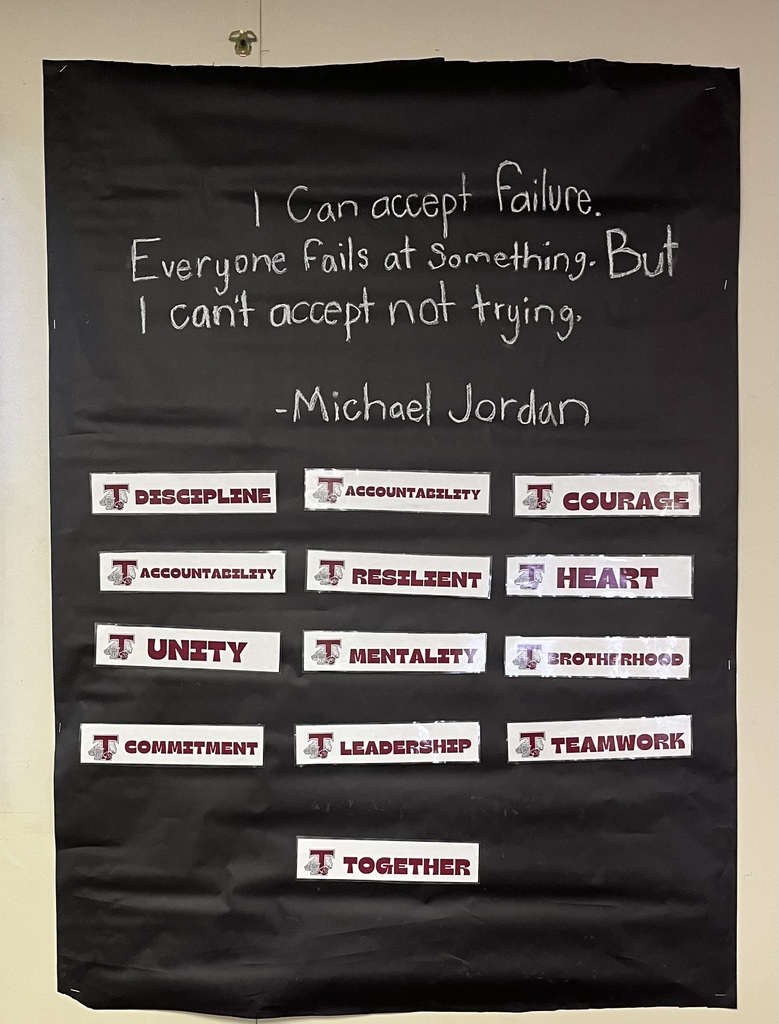 I Can accept Failure.
Everyone Fails at Something. But
I can't accept not trying.
-Michael Jordan
T DISCIPLINE
T ACCOUNTABILITY
T COURAGE
T ACCOUNTABILITY
T RESILIENT
T HEART
T UNITY
T MENTALITY
T BROTHERHOOD
T COMMITMENT
T LEADERSHIP
T TEAMWORK
T TOGETHER